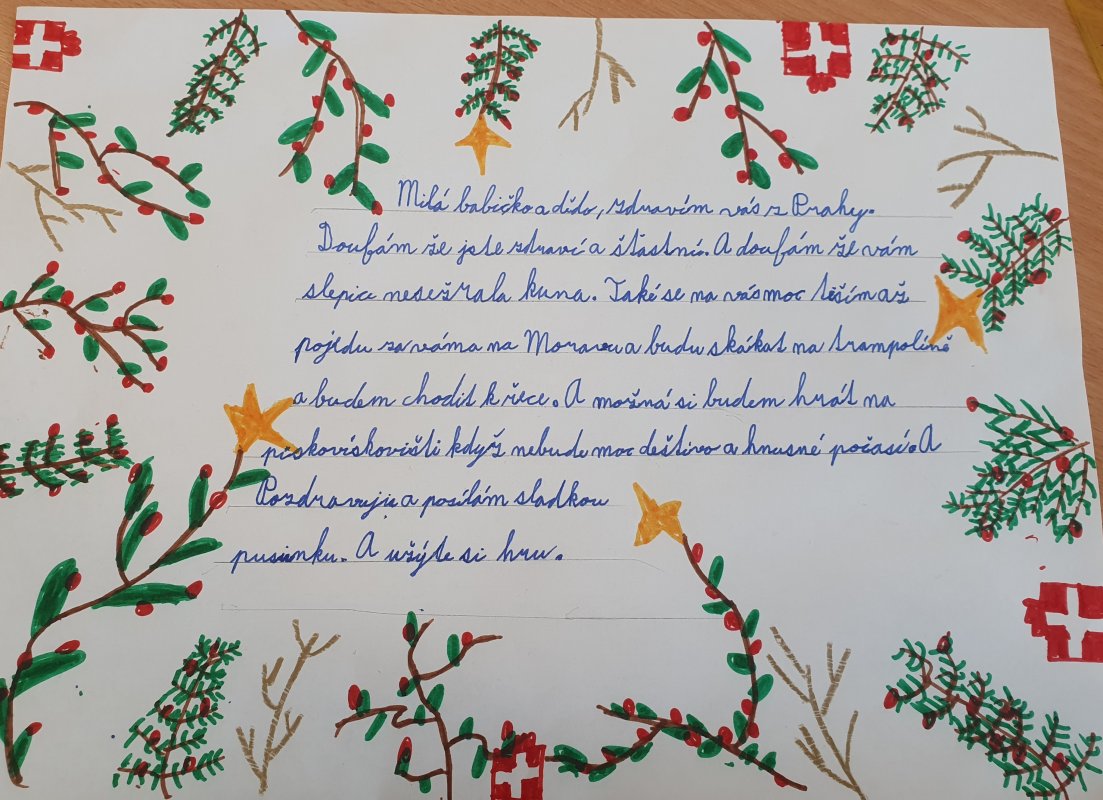 Milá babičko a dědo, zdravím vás z Prahy.
Doufám že jste zdraví a šťastní. A doufám že vám
slepice nesežrala kuna. Také se na vás moc těším až
pojedu za váma na Moravu a budu skákat na trampolíně
a budem chodit k řece. A možná si budem hrát na
pískovískovišti když nebude moc deštivo a hnusné počasí. A
Pozdravuju a posílám sladkou
pusinku. A užýte si hru.